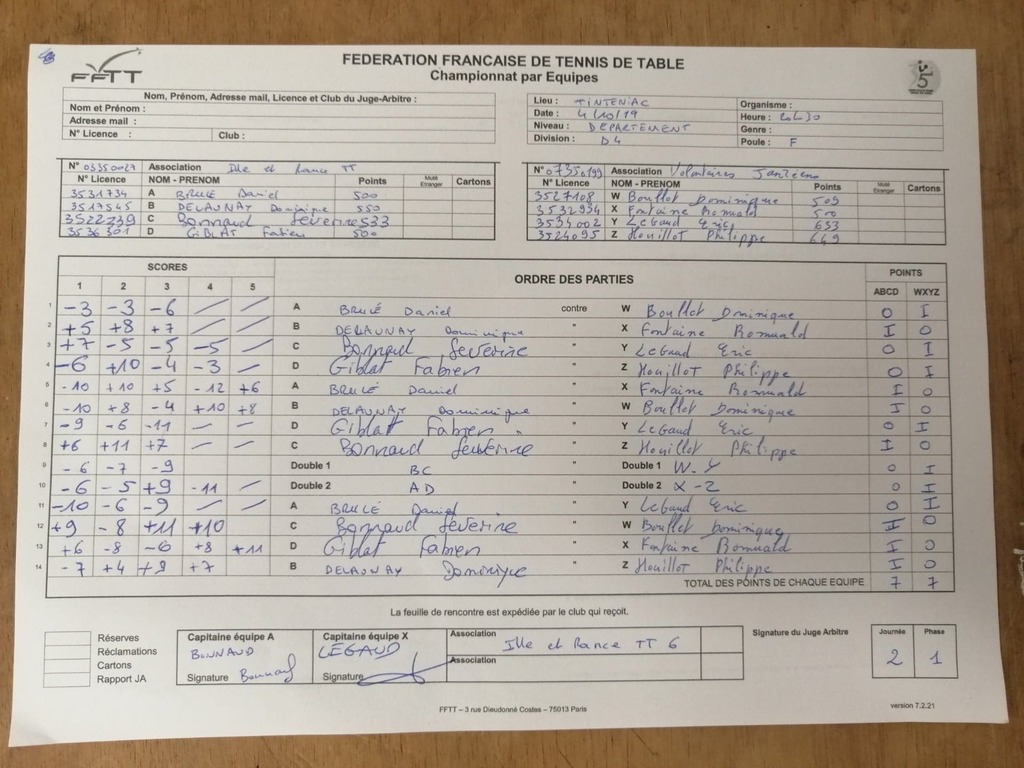 FFTT
FEDERATION FRANCAISE DE TENNIS DE TABLE
Championnat par Equipes
Nom, Prénom, Adresse mail, Licence et Club du Juge-Arbitre :
Nom et Prénom :
Adresse mail :
N° Licence : Club :
Lieu : TINTENIAC Organisme :
Date : 4/10/19 Heure : 20h30
Niveau : DEPARTEMENT Genre :
Division : D4 Poule : F
N° 03350029 Association Ille et Rance TT
N° Licence NOM - PRENOM Points Muté Etranger Cartons
3531734 A BRULÉ Daniel 500
3513545 B DELAUNAY Dominique 550
3522739 C Bonnaud Séverine 533
3536301 D GIBLAT Fabien 500
N° 07350199 Association Volontaires
N° Licence NOM - PRENOM Points Muté Etranger Cartons
3527108 W Boullot Dominique 509
3532934 X Fontaine Romuald 500
3534002 Y LeGaud Eric 653
3524095 Z Houillot Philippe 649
SCORES ORDRE DES PARTIES POINTS
1 2 3 4 5 ABCD WXYZ
1 -3 -3 -6 / / A BRULÉ Daniel contre W Boullot Dminique 0 I
2 +5 +8 +7 / / B DELAUNAY Dominique " X Fontaine Romuald I 0
3 +7 -5 -5 -5 / C Bonnaud Séverine " Y LeGaud Eric 0 I
4 -6 +10 -4 -3 / D Giblat Fabien " Z Houillot Philippe 0 I
5 -10 +10 +5 -12 +6 A BRULÉ Daniel " X Fontaine Romuald I 0
6 -10 +8 -4 +10 +8 B DELAUNAY Dominique " W Boullot Dominique I 0
7 -9 -6 -11 / / D Giblat Fabien " Y LeGaud Eric 0 I
8 +6 +11 +7 / / C Bonnaud Séverine " Z Houillot Philippe I 0
9 -6 -7 -9 Double 1 BC " Double 1 W-Y 0 I
10 -6 -5 +9 -11 / Double 2 AD " Double 2 X-Z 0 I
11 -10 -6 -9 / / A BRULÉ Daniel " Y LeGaud Eric 0 I
12 +9 -8 +11 +10 C Bonnaud Séverine " W Boullot Dominique I 0
13 +6 -8 -6 +8 +11 D Giblat Fabien " X Fontaine Romuald I 0
14 -7 +4 +9 +7 B DELAUNAY Dominique " Z Houillot Philippe I 0
TOTAL DES POINTS DE CHAQUE EQUIPE 7 7
La feuille de rencontre est expédiée par le club qui reçoit.
Réserves
Réclamations
Cartons
Rapport JA
Capitaine équipe A
BONNAUD
Signature Bonnaud
Capitaine équipe X
LEGAUD
Signature
Association Ille et Rance TT 6
Association
Signature du Juge Arbitre
Journée Phase
2 1
FFTT – 3 rue Dieudonné Costes – 75013 Paris
version 7.2.21